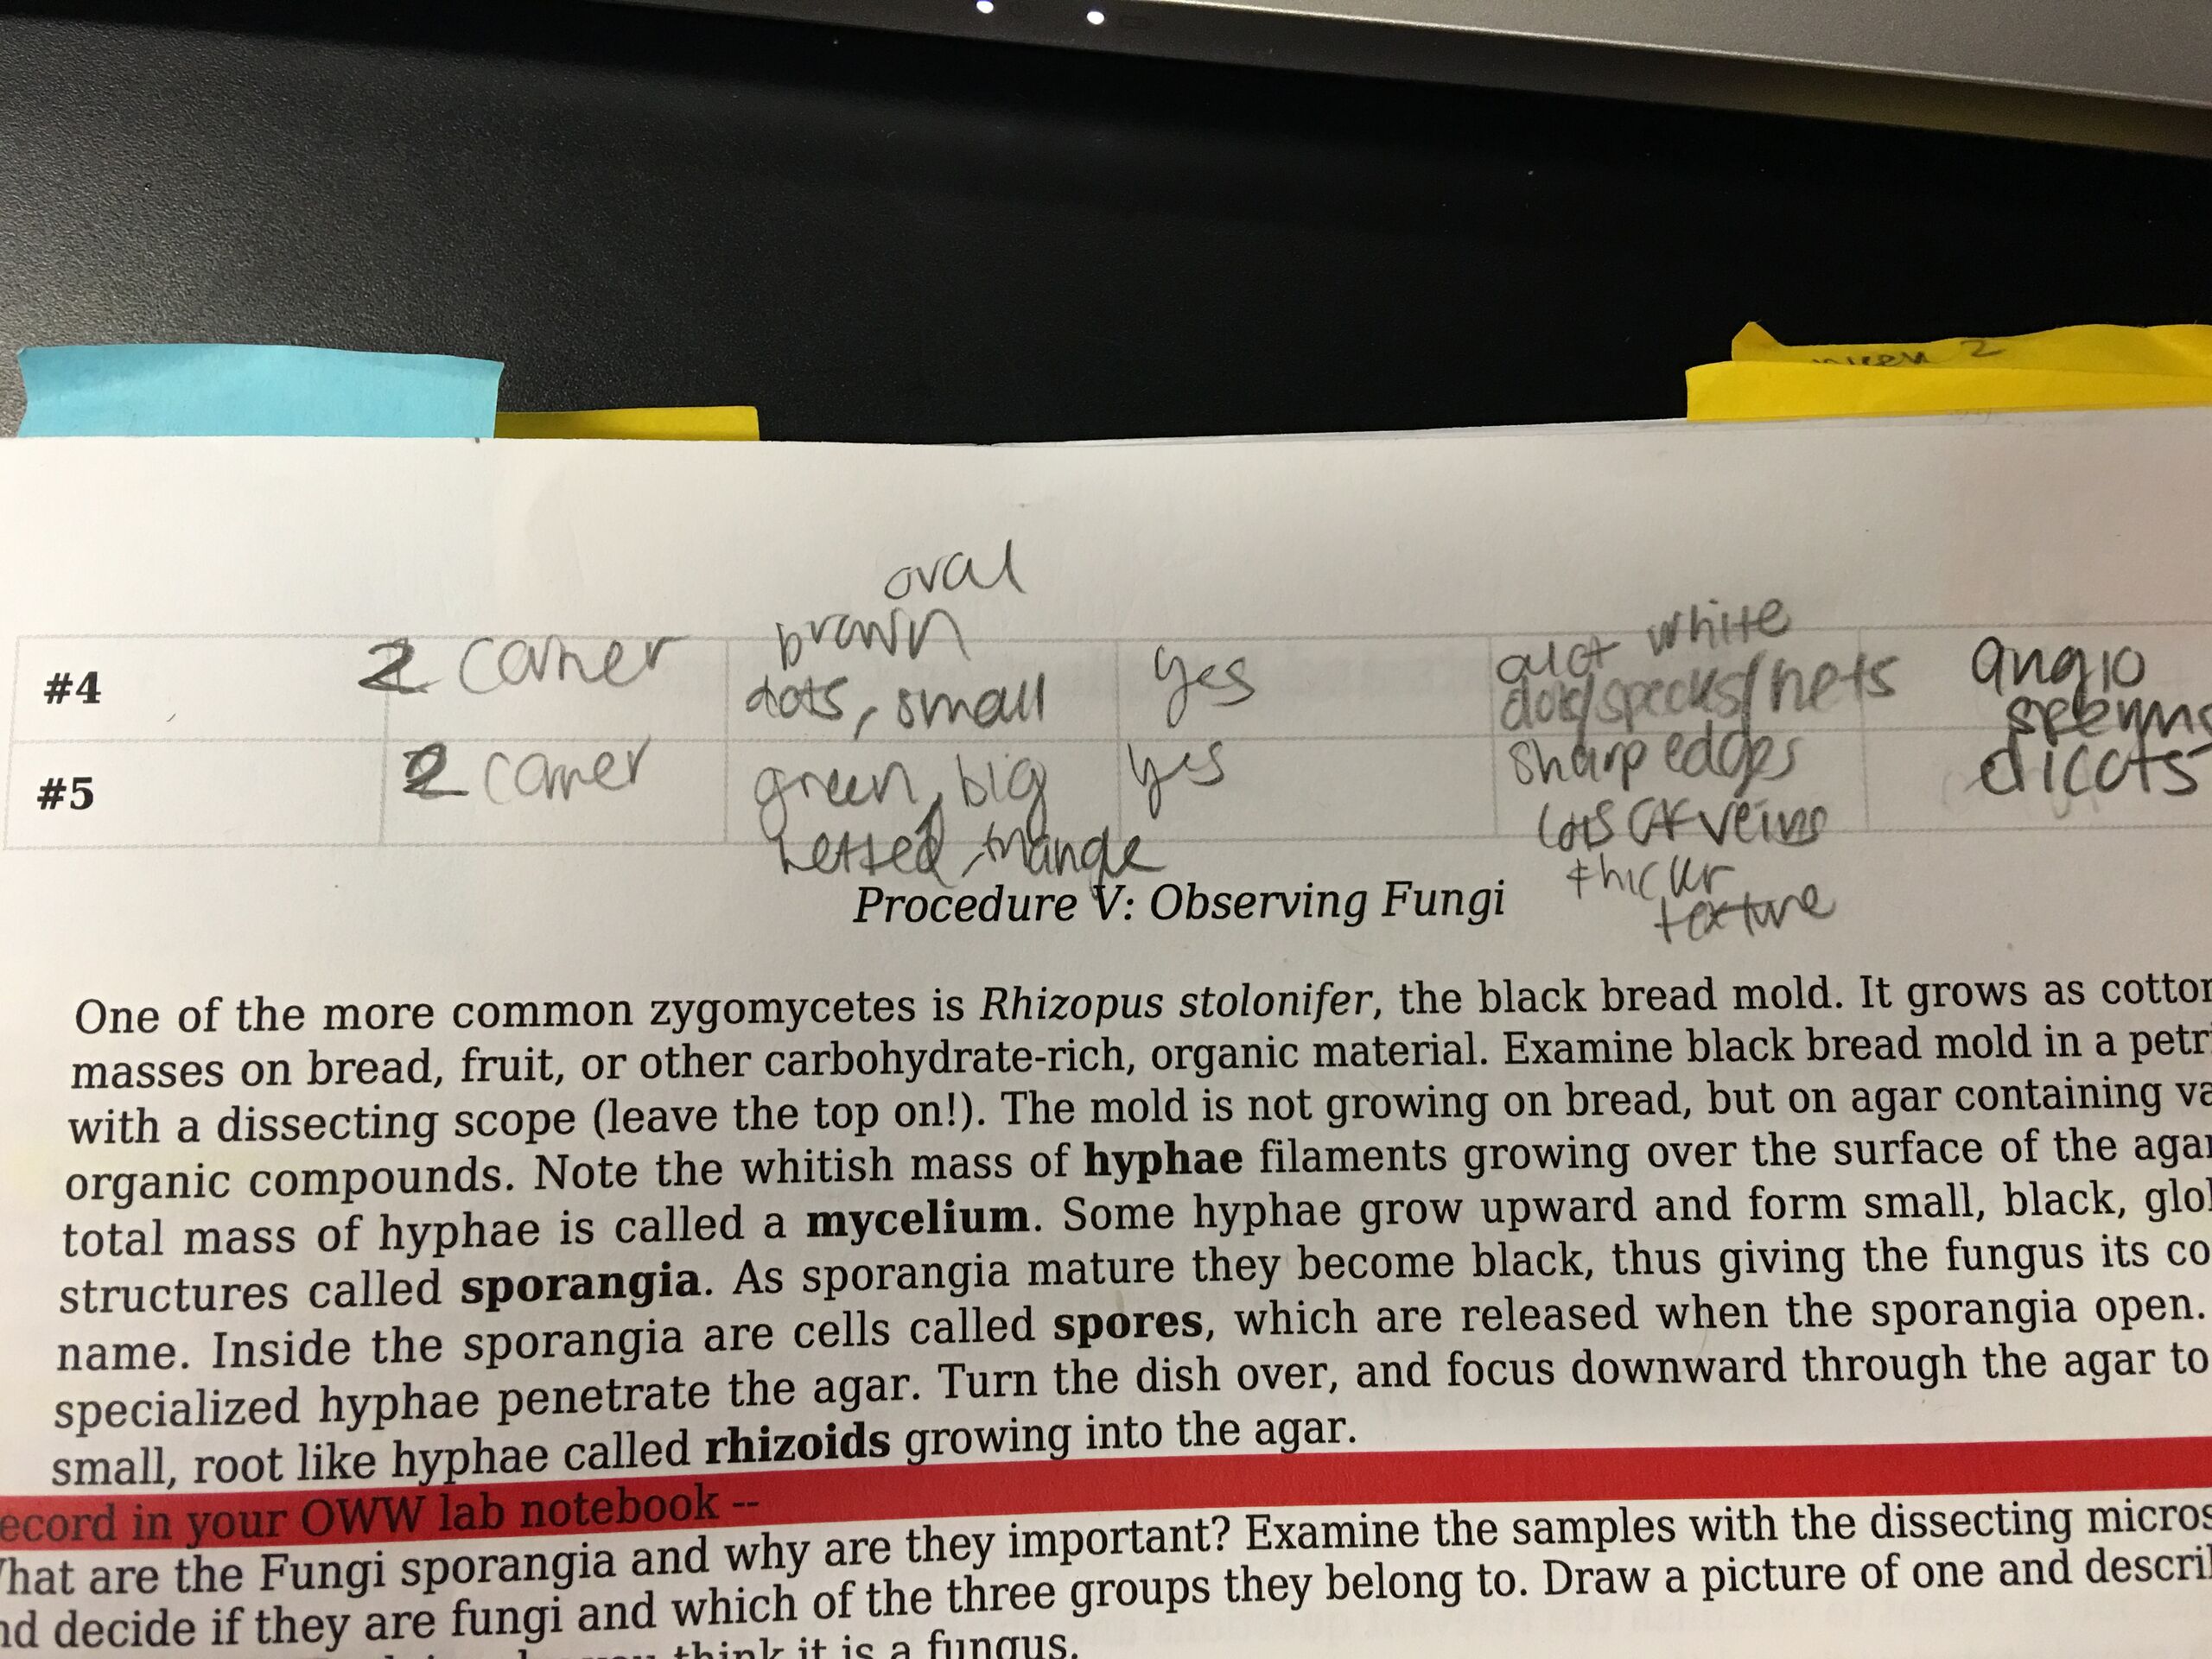 2
oval
brown
#4 2 corner dots, small yes alot white
dots/specks/nets angio
sperms
#5 2 corner green, big yes sharp edges dicots
netted, triangle lots of veins
thicker
texture
Procedure V: Observing Fungi
One of the more common zygomycetes is Rhizopus stolonifer, the black bread mold. It grows as cotton
masses on bread, fruit, or other carbohydrate-rich, organic material. Examine black bread mold in a petri
with a dissecting scope (leave the top on!). The mold is not growing on bread, but on agar containing va
organic compounds. Note the whitish mass of hyphae filaments growing over the surface of the agar
total mass of hyphae is called a mycelium. Some hyphae grow upward and form small, black, glob
structures called sporangia. As sporangia mature they become black, thus giving the fungus its co
name. Inside the sporangia are cells called spores, which are released when the sporangia open.
specialized hyphae penetrate the agar. Turn the dish over, and focus downward through the agar to
small, root like hyphae called rhizoids growing into the agar.
ecord in your OWW lab notebook --
hat are the Fungi sporangia and why are they important? Examine the samples with the dissecting micros
nd decide if they are fungi and which of the three groups they belong to. Draw a picture of one and descri
you think it is a fungus.